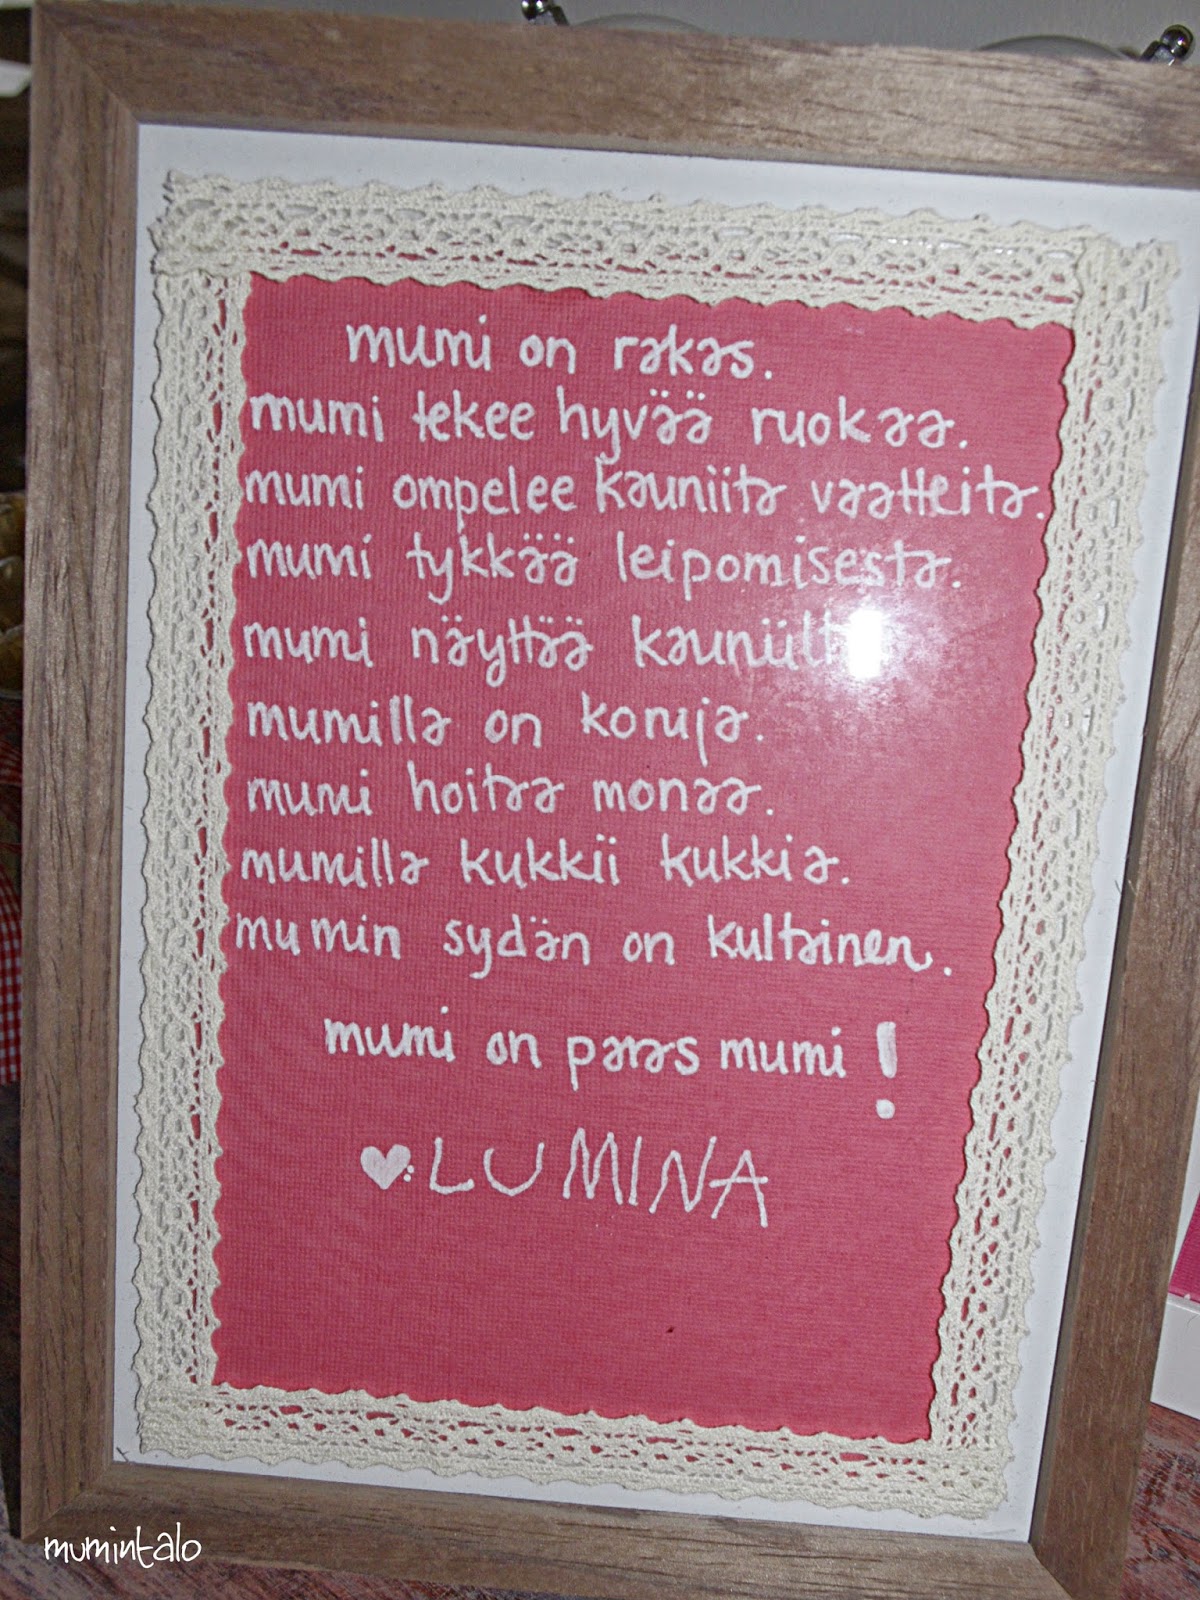 mumi on rakas.
mumi tekee hyvää ruokaa.
mumi ompelee kauniita vaatteita.
mumi tykkää leipomisesta.
mumi näyttää kauniilta
mumilla on koruja.
mumi hoitaa monaa.
mumilla kukkii kukkia.
mumin sydän on kultainen.
mumi on paras mumi!
♥:LUMINA
mumintalo